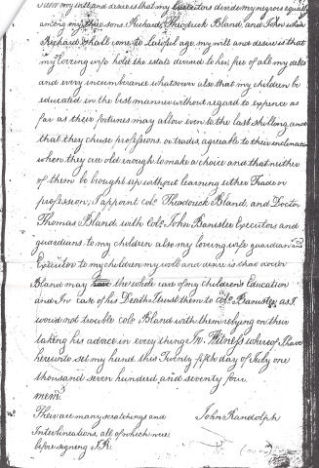 my will and desire is that my Executors divide my negroes equally
among my three sons Richard, Theodorick Bland, and John when
Richard shall come to lawful age, my will and desire is that
my loving wife hold the estate devised to her free of all my debts
and every incumbrance whatsoever also that my children be
educated in the best manner without regard to expence as
far as their fortunes may allow even to the last shilling, and
that they chuse professions or trades agreable to their inclinations
when they are old enough to make a choice and that neither
of them be brought up without learning either Trade or
profession, I appoint Colo. Theodorick Bland, and Doctor
Thomas Bland, with Colo. John Banister Executors and
guardians to my children also my loving wife guardian and
Executor to my children my will and desire is that Doctor
Bland may the whole care of my children's Education
and In case of his Death I trust them to Colo. Banister, as I
would not trouble Colo. Bland with them relying on their
taking his advice in every thing In Witness whereof I have
hereunto set my hand this Twenty fifth day of July one
thousand seven hundred and seventy four
memo.
There are many scratchings and John Randolph
Interlineations, all of which were
before signing J.R.